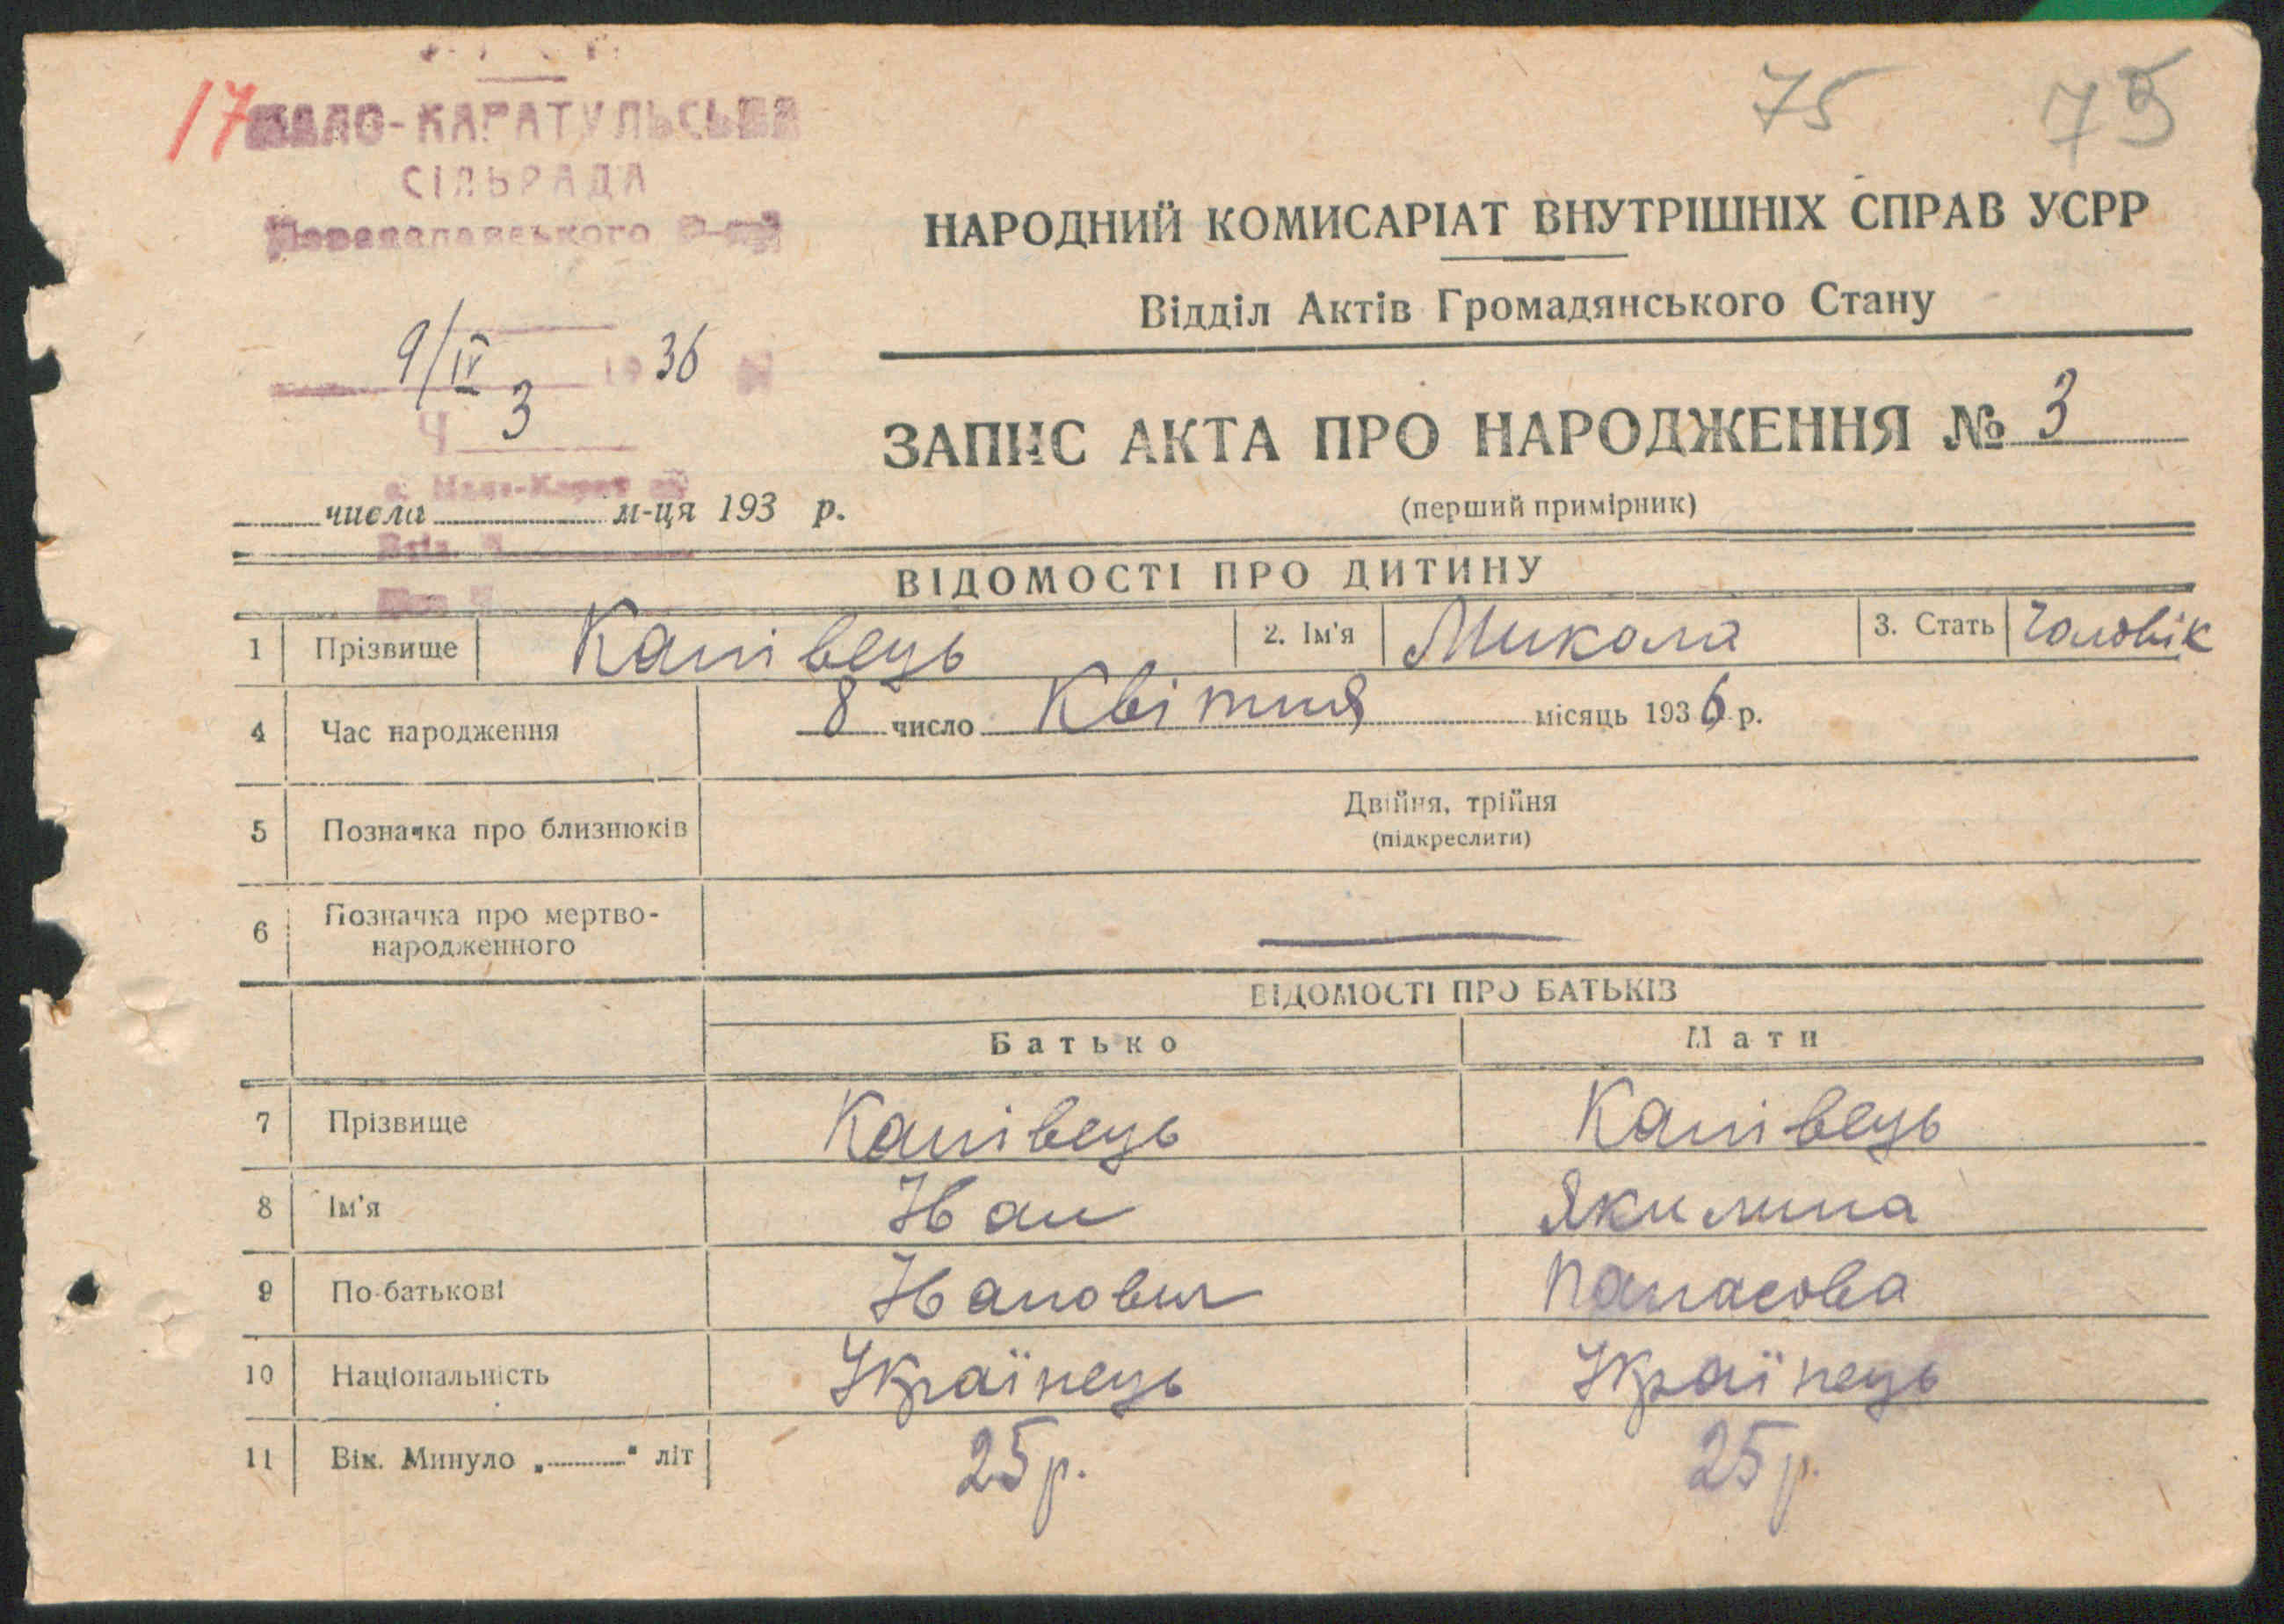 17
МАЛО-КАРАТУЛЬСЬКА
СІЛЬРАДА
Переяславського Р-ну
75 75
НАРОДНИЙ КОМИСАРІАТ ВНУТРІШНІХ СПРАВ УСРР
Відділ Актів Громадянського Стану
9/IV 1936
Ч 3
ЗАПИС АКТА ПРО НАРОДЖЕННЯ № 3
(перший примірник)
числа м-ця 193 р.
ВІДОМОСТІ ПРО ДИТИНУ
1 Прізвище Канівець 2. Ім'я Микола 3. Стать Чоловік
4 Час народження 8 число Квітня місяць 1936 р.
5 Позначка про близнюків Двійня, трійня
(підкреслити)
6 Позначка про мертво-
народженного
ВІДОМОСТІ ПРО БАТЬКІВ
Батько Мати
7 Прізвище Канівець Канівець
8 Ім'я Іван Якилина
9 По-батькові Іванович Панасова
10 Національність Українець Українець
11 Вік. Минуло „ " літ 25 р. 25 р.